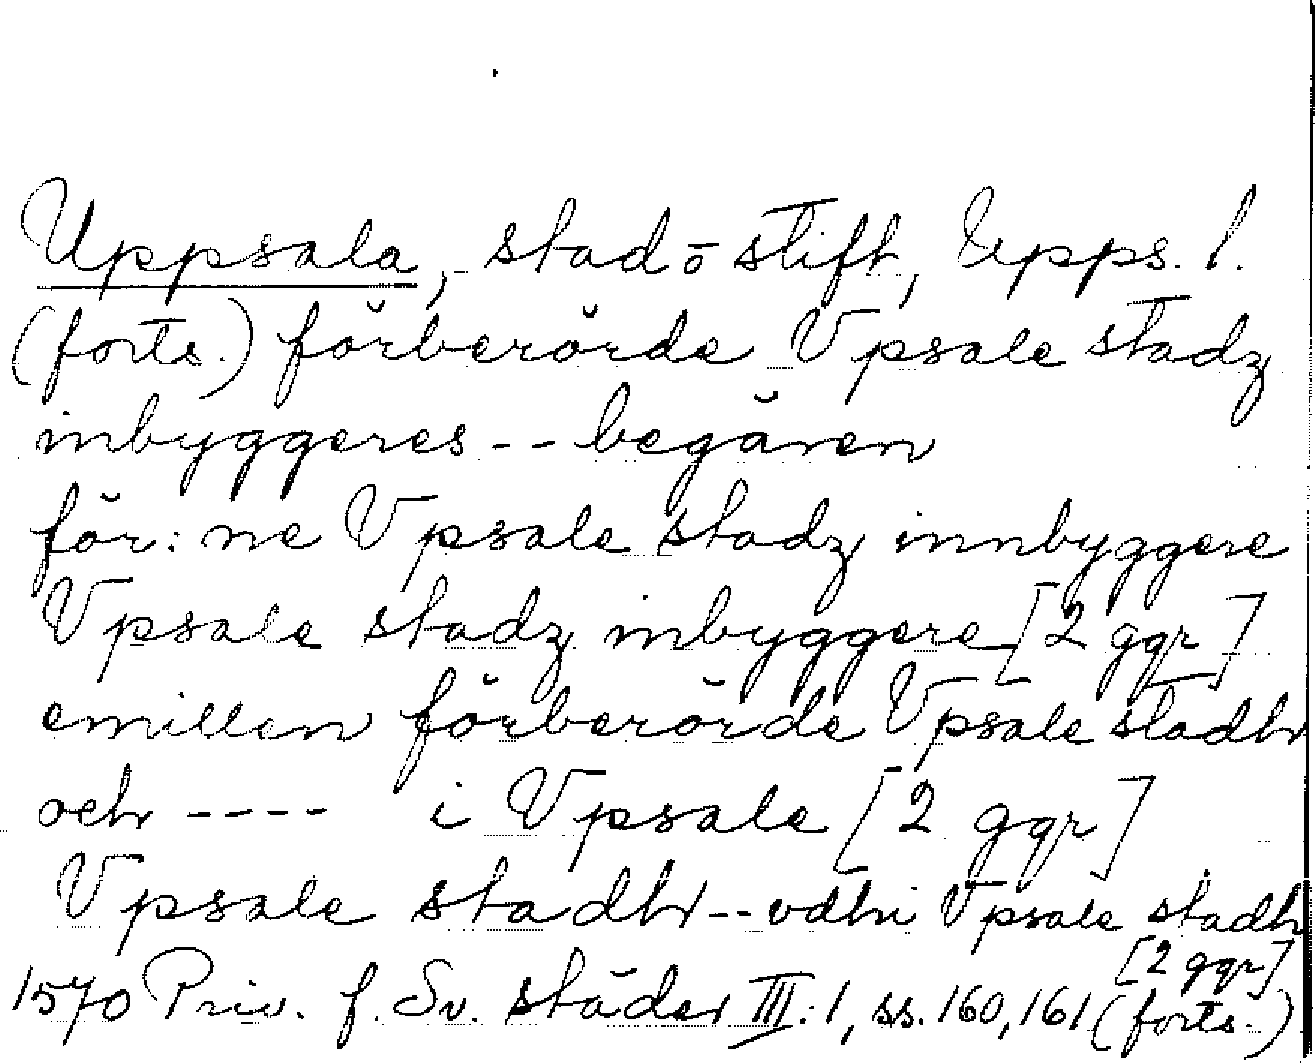 Uppsala, stad o stift, Upps. l.
(forts.) förberörde Vpsale stadz
inbyggeres -- begären
för:ne Vpsale stadz innbyggere
Vpsale stadz inbyggere [2 ggr]
emillen förberörde Vpsale stadh
och ---- i Vpsale [2 ggr]
Vpsale stadh -- vdhi Vpsale stadh
[2 ggr]
1570 Priv. f. Sv. städer III:1, ss. 160, 161 (forts.)